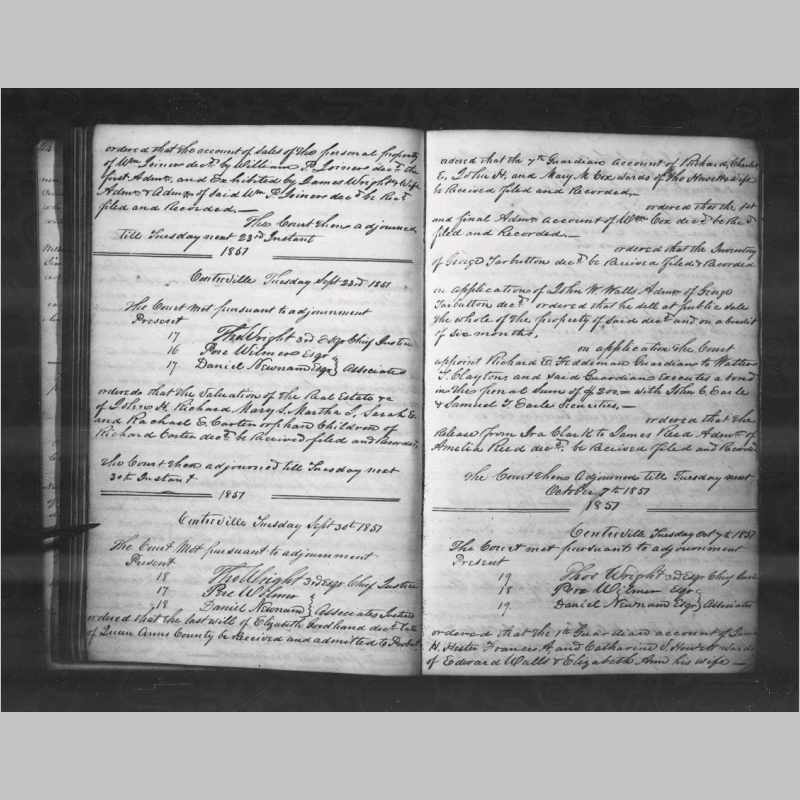 ordered that the account of sales of the personal property
of Wm Joiner decd. by William P. Joiner decd. the
first Admr. and Exhibited by James Wright & Wife
Admr & Admx of said Wm P. Joiner decd be Recd
filed and Recorded.—
The Court then adjourned
till Tuesday next 23rd Instant
1851
Centreville Tuesday Sept 23rd 1851
The Court Met pursuant to adjournment
Present
17 Tho Wright 3rd Esqr Chief Justice
16 Pere Wilmer Esqr
17 Daniel Newnam Esqr } Associates
ordered that the Valuation of the Real Estate &c
of John H. Richard Mary L. Martha J. Sarah E.
and Rachael E. Carter orphan Children of
Richard Carter decd. be Received filed and Recorded,
The Court then adjourned till Tuesday next
30th Instant
1851
Centreville Tuesday Sept 30th 1851
The Court Met pursuant to adjournment
Present
18 Tho Wright 3rd Esqr Chief Justice
17 Pere Wilmer
18 Daniel Newnam } Associates
ordered that the last will of Elizabeth decd. late
of Queen Anns County be Received and admitted to Probat
ordered that the 7th Guardian account of Richard, Charles
E. John H. and Mary M. Cox wards of Tho & Wife
be Received filed and Recorded,
ordered that the 1st
and final Admr account of Wm Cox decd be Recd
filed and Recorded.—
ordered that the Inventory
of George Tarbutton decd. be Received filed & Recorded
on application of John W. Walls Admr of George
Tarbutton decd. ordered that he sell at public sale
the whole of the property of said decd. and on a credit
of six months,
on application the Court
appoint Richard E. Feddeman Guardian to Walter
J. Clayton and said Guardian executes a bond
in the penal Sum of with John C. Earle
& Samuel T. Earle Securities,—
ordered that the
Release from Ira Clark to James Reed Admr of
Amelia Reed decd. be Received filed and Recorded
The Court then Adjourned till Tuesday next
October 7th 1851
1851
Centreville Tuesday Oct 7th 1851
The Court met pursuant to adjournment
Present
19 Thos Wright 3rd Esqr Chief
18 Pere Wilmer Esqr
19. Daniel Newnam Esqr } Associates
ordered that the 1st Guardian account of
H. Hester Frances A. and Catharine S. wards
of Edward Walls & Elizabeth Ann his wife —